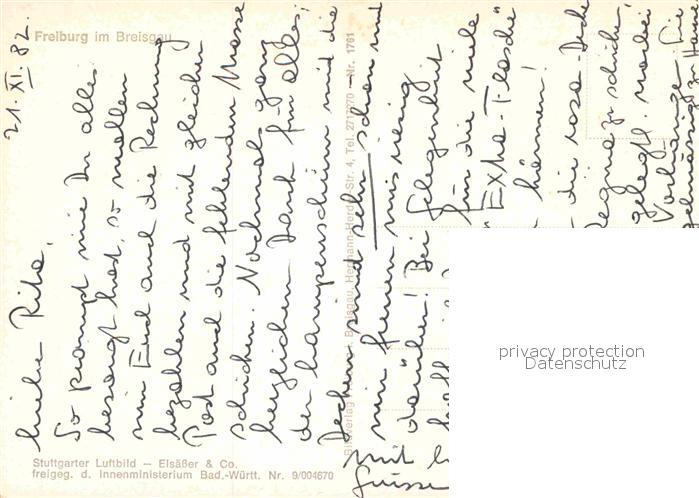 21. XI. 82.
Liebe Rita,
So prompt wie Du alles
besorgt hast, so wollen
wir Euch auch die Rechnung
bezahlen und mit gleicher
Post auch die fehlenden Masse
schicken. Nochmals ganz
herzlichen Dank für alles;
der Lampenschirm und die
Decken sind sehr schön und
wir freuen uns riesig
darüber! Bei Gelegenheit
für die viele
"Extra-
können!
die rosa
zu schicken
gelegtl.
Vorhänge. Sie
zu
mit
Grüsse
Freiburg im Breisgau
Stuttgarter Luftbild – Elsäßer & Co.
freigeg. d. Innenministerium Bad.-Württ. Nr. 9/004670
Breisgau, Hermann-Herder-Str. 4, Tel. 2717270 – Nr. 1761
privacy protection
Datenschutz